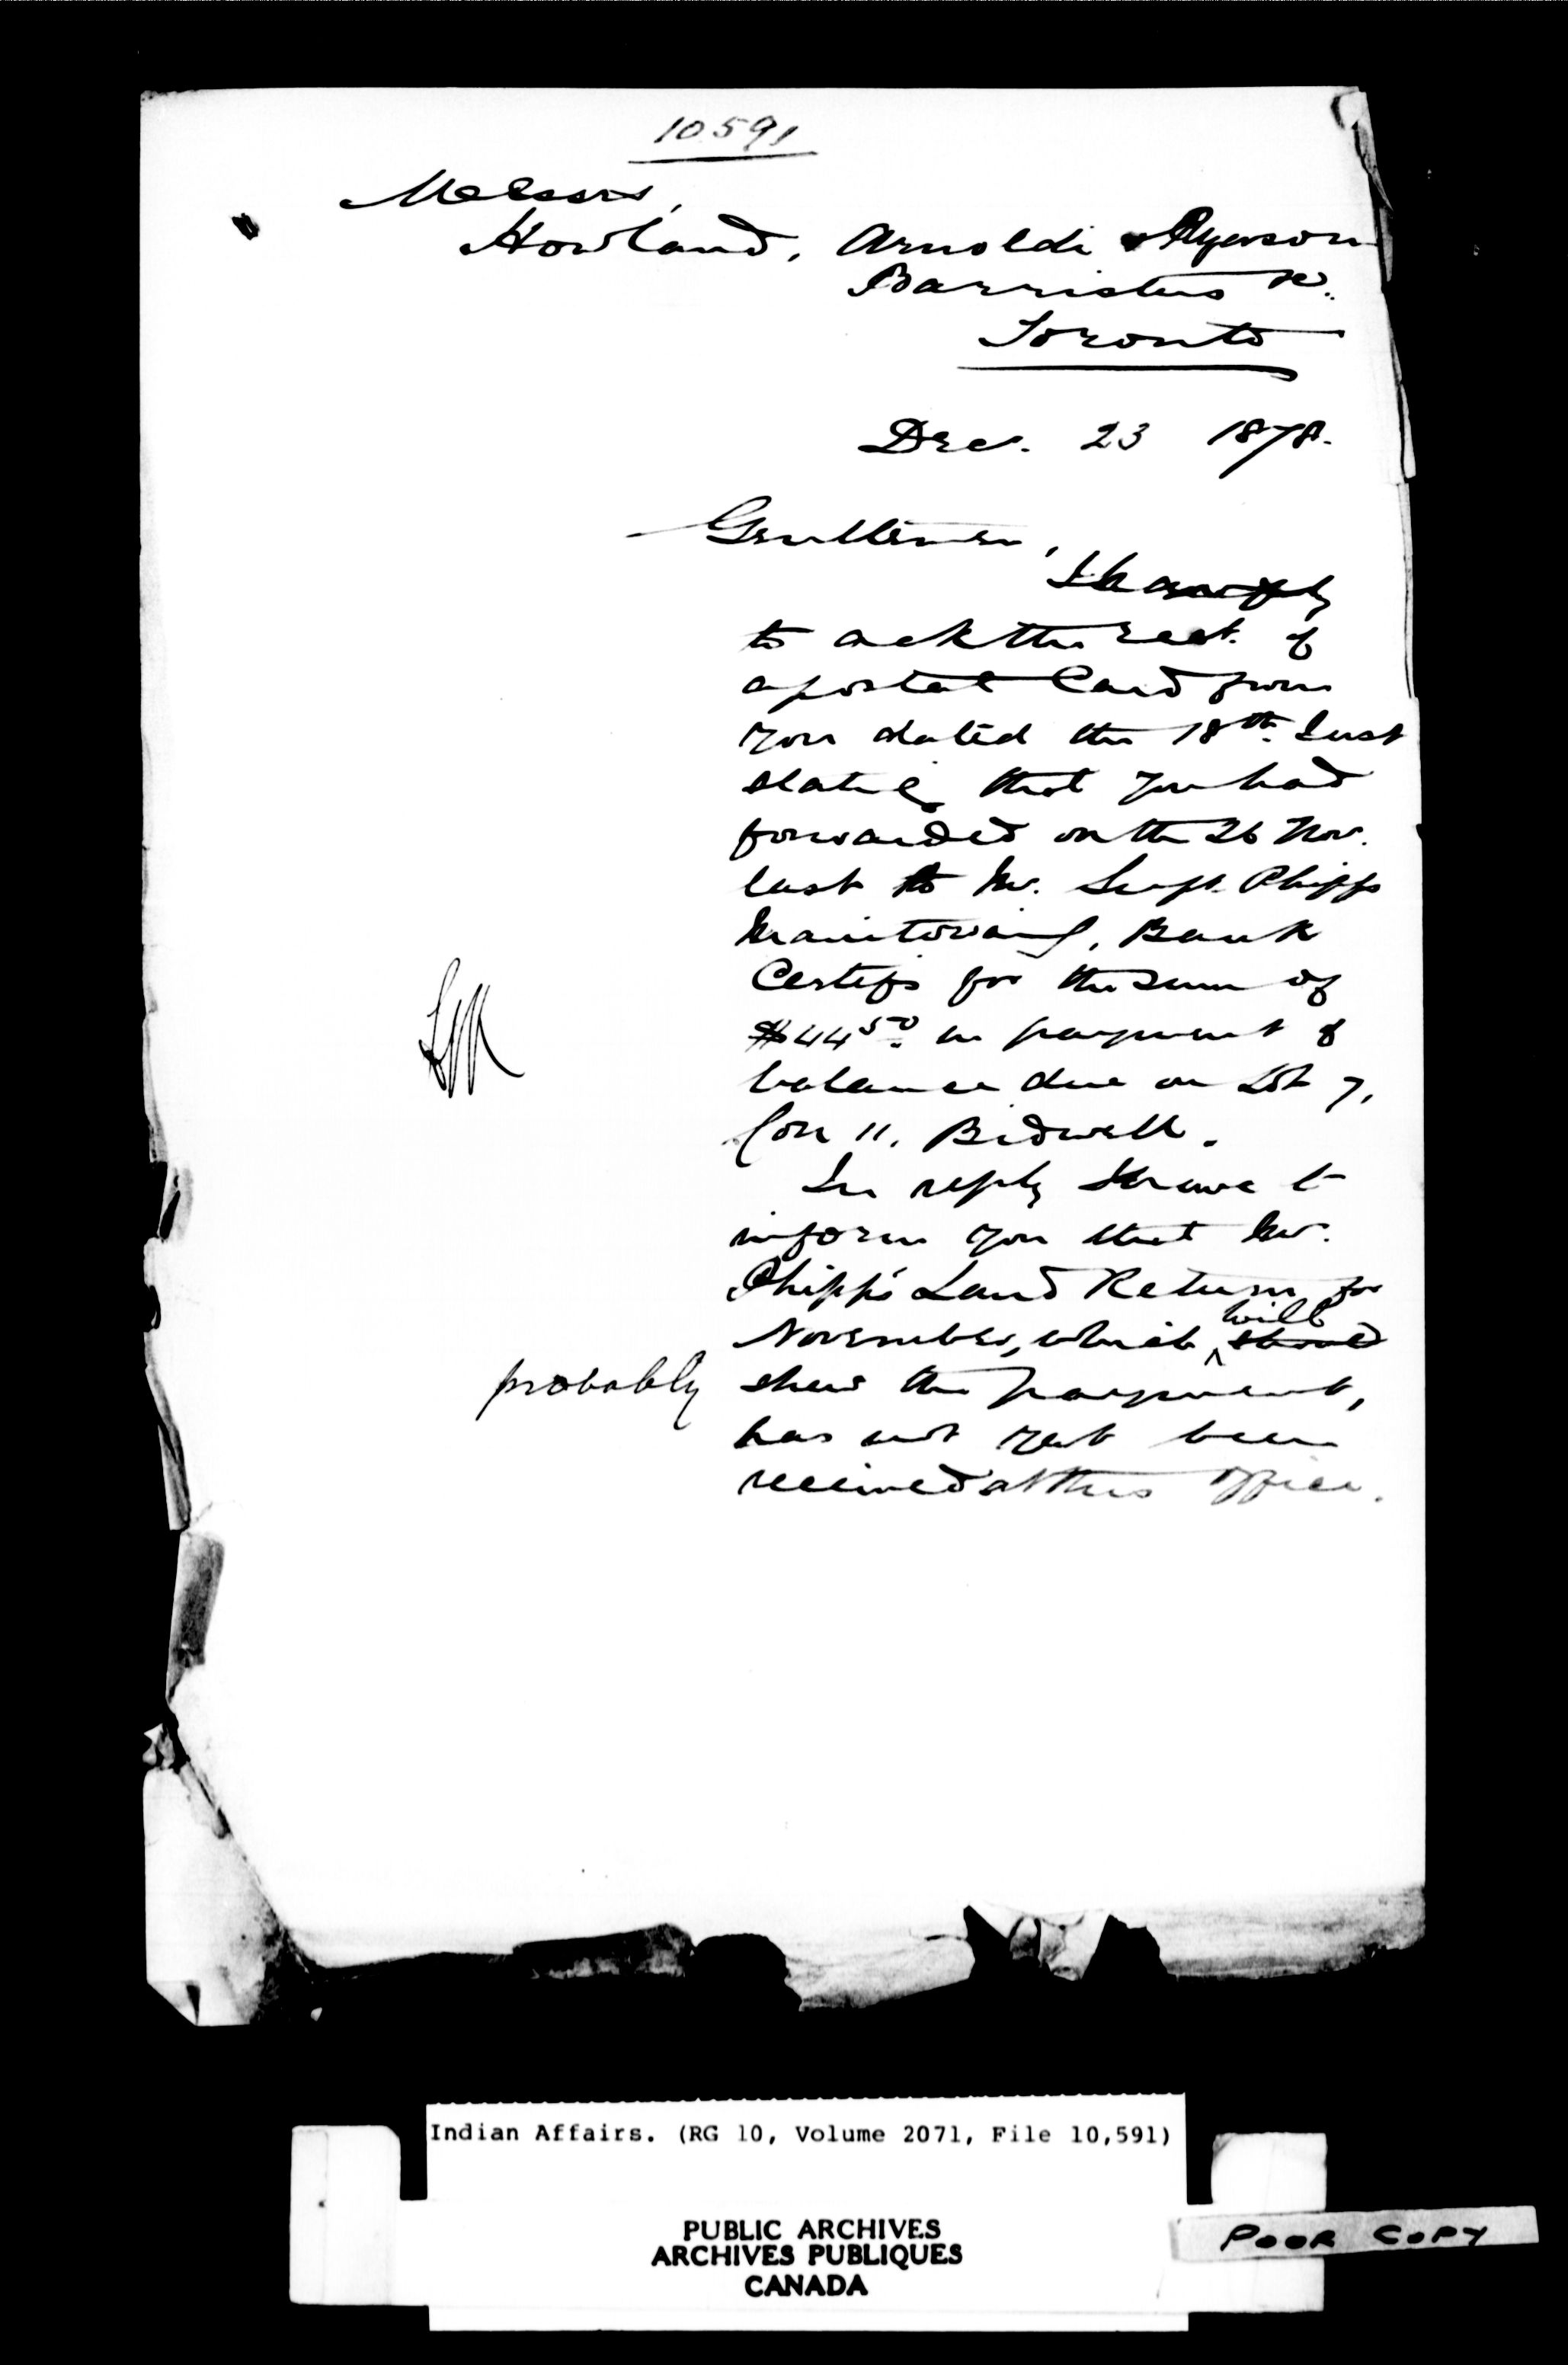 10591
Messrs,
Howland, Arnoldi & Ryerson
Barristers &c.
Toronto
Dec. 23 1878.
Gentlemen,
I have
to ack the rect. of
a postal Card from
you dated the 18th Inst
stating that you had
forwarded on the 26 Nov.
last to Mr. Supt. Phipps
Manitowaning, Bank
Certifs for the sum of
$44.50 in payment of
balance due on Lot 7,
Con 11, Bidwell.
In reply I have to
inform you that Mr.
Phipps' Land Return for
will
November, which ^ should
probably shew the payment,
has not yet been
received at this Office.
Indian Affairs. (RG 10, Volume 2071, File 10,591)
PUBLIC ARCHIVES
ARCHIVES PUBLIQUES
CANADA
POOR COPY